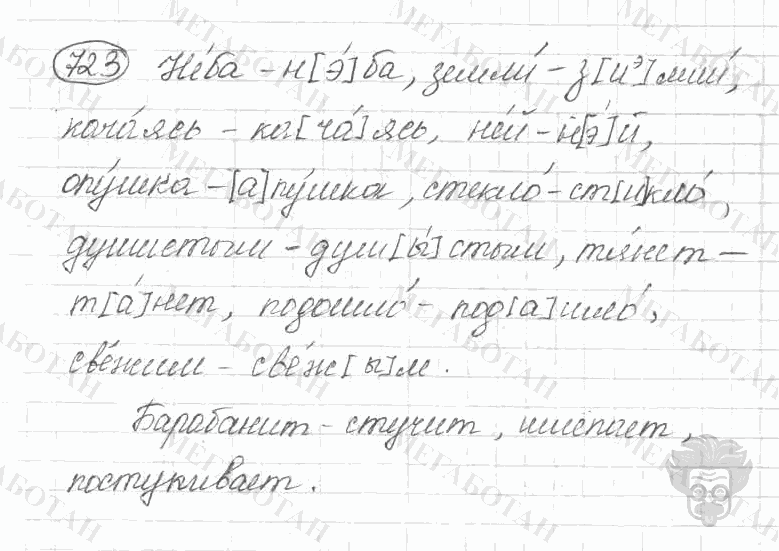 723 Не́ба – н[э́]ба, земли́ – з[иэ]мли́,
кача́ясь – ка[ча́]ясь, ней – н[э́]й,
опу́шка – [а]пу́шка, стекло́ – ст[и]кло́,
душистым – душ[ы́]стым, тя́нет –
т[а́]нет, подошло́ – под[а]шло́,
све́жим – све́ж[ы]м.
Барабанит – стучит, шлепает,
постукивает.
МЕГАБОТАН